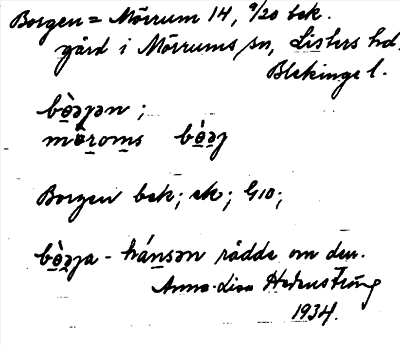 Borgen = Mörrum 14, 9/20 bek.
gård i Mörrums sn, Listers hd.
Blekinge l.
bö̀əjən ;
mö̀roms bö̀əj
Borgen bek; ek; G10;
bö̀əja - hánsən rådde om den.
Anna-Lisa Hedenström
1934.